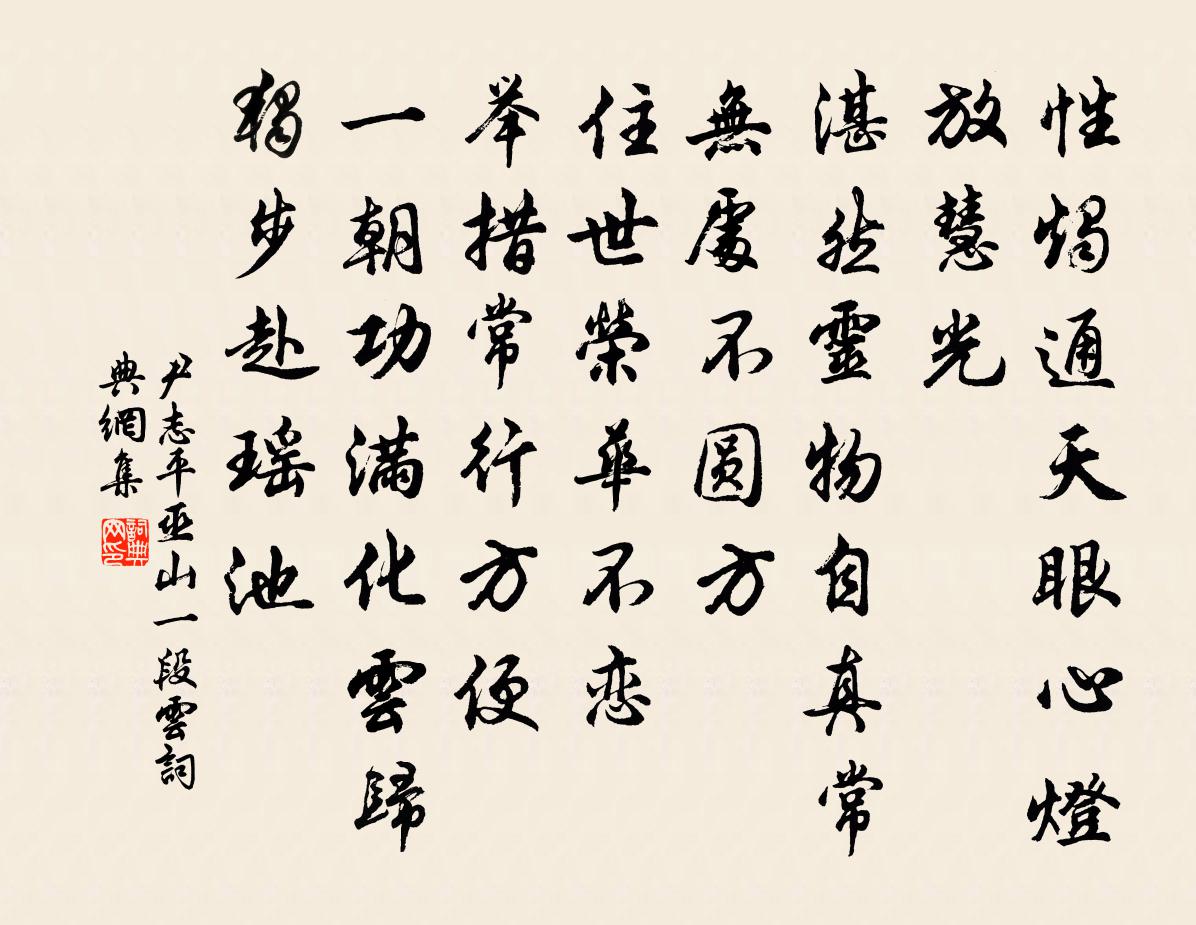 性燭通天眼心燈
放慧光
湛然靈物自真常
無處不圆方
住世榮華不恋
举措常行方便
一朝功滿化雲歸
獨步赴瑶池
尹志平巫山一段雲詞
典網集
詞典网印